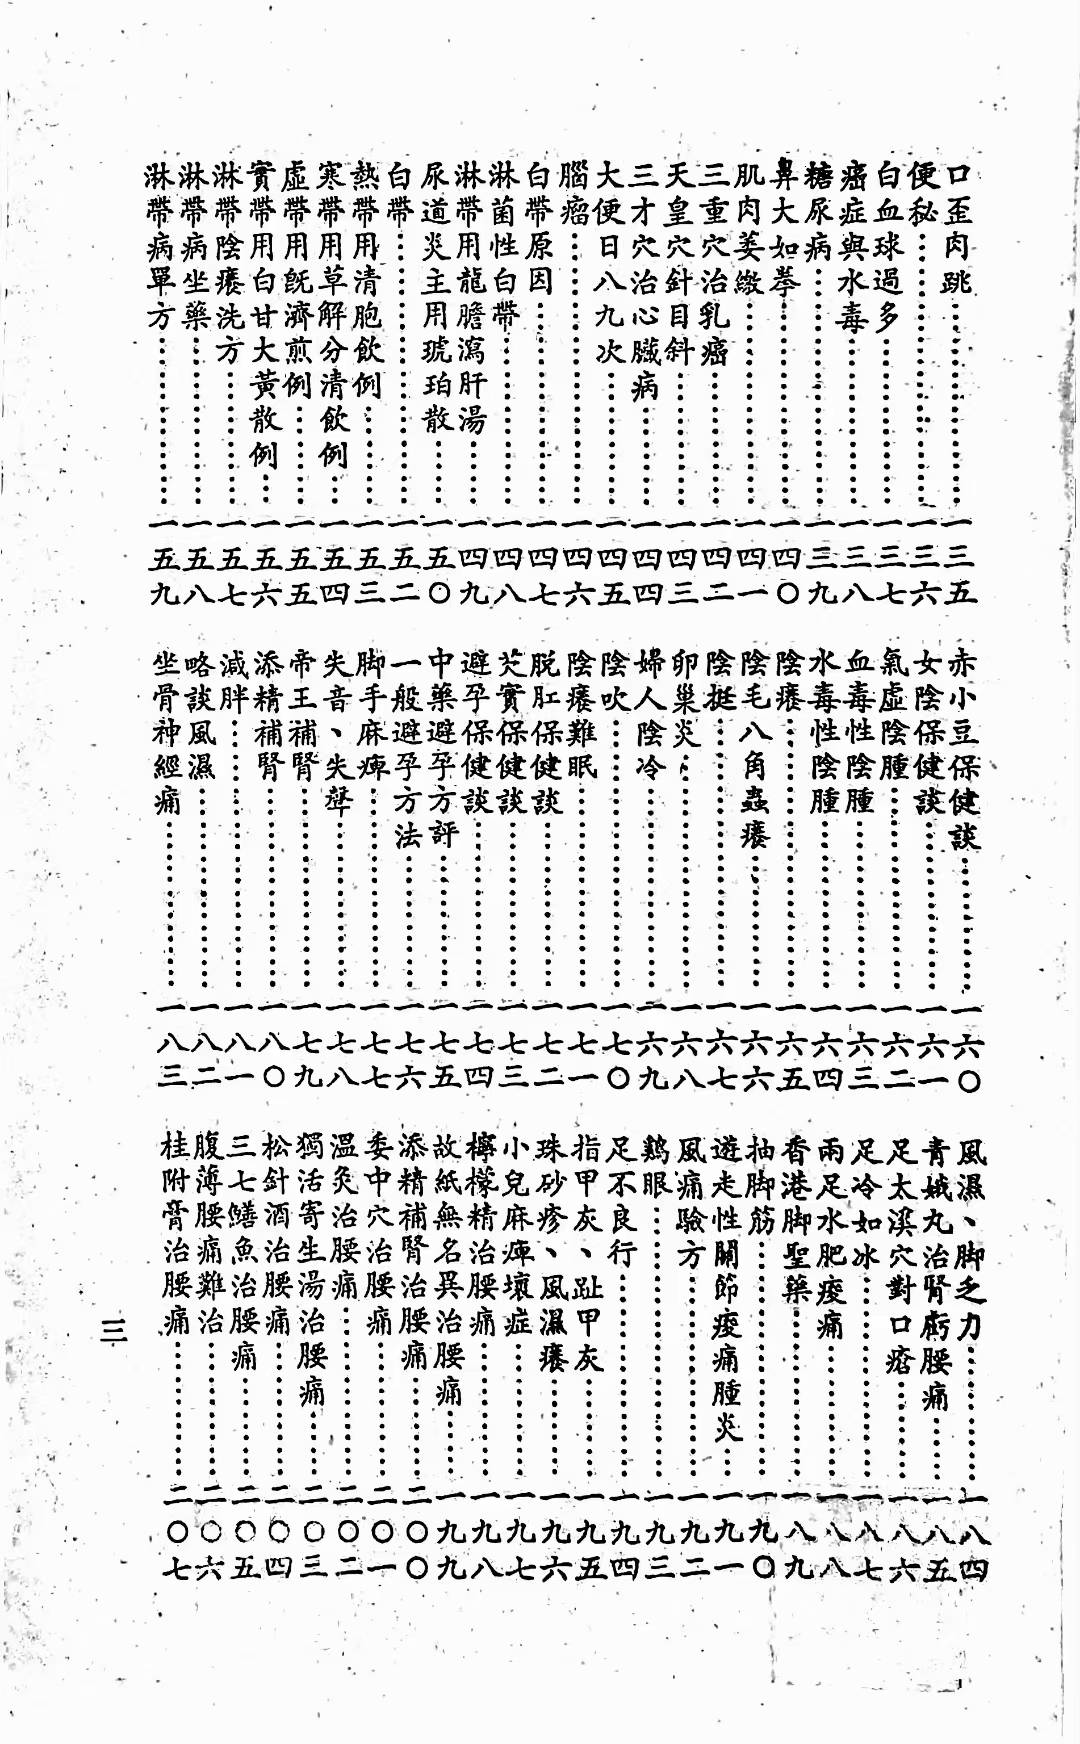 口歪肉跳……一三五
便秘……一三六
白血球過多……一三七
癌症與水毒……一三八
糖尿病……一三九
鼻大如拳……一四〇
肌肉萎緻……一四一
三重穴治乳癌……一四二
天皇穴針目斜……一四三
三才穴治心臟病……一四四
大便日八九次……一四五
腦瘤……一四六
白帶原因……一四七
淋菌性白帶……一四八
淋帶用龍膽瀉肝湯……一四九
尿道炎主用琥珀散……一五〇
白帶……一五二
熱帶用清胞飲例……一五三
寒帶用草解分清飲例……一五四
虛帶用既濟煎例……一五五
實帶用白甘大黃散例……一五六
淋帶陰癢洗方……一五七
淋帶病坐藥……一五八
淋帶病單方……一五九
赤小豆保健談……一六〇
女陰保健談……一六一
氣虛陰腫……一六二
血毒性陰腫……一六三
水毒性陰腫……一六四
陰癢……一六五
陰毛八角蟲癢……一六六
陰挺……一六七
卵巢炎……一六八
婦人陰冷……一六九
陰吹……一七〇
陰癢難眠……一七一
脫肛保健談……一七二
芡實保健談……一七三
避孕保健談……一七四
中藥避孕方評……一七五
一般避孕方法……一七六
脚手麻痺……一七七
失音、失聲……一七八
帝王補腎……一七九
添精補腎……一八〇
減胖……一八一
略談風濕……一八二
坐骨神經痛……一八三
風濕、脚乏力……一八四
青娥丸治腎虧腰痛……一八五
足太溪穴對口瘡……一八六
足冷如冰……一八七
兩足水肥痠痛……一八八
香港脚聖藥……一八九
抽脚筋……一九〇
遊走性關節痠痛腫炎……一九一
風痛驗方……一九二
鷄眼……一九三
足不良行……一九四
指甲灰、趾甲灰……一九五
珠砂疹、風濕癢……一九六
小兒麻痺壞症……一九七
檸檬精治腰痛……一九八
故紙無名異治腰痛……一九九
添精補腎治腰痛……二〇〇
委中穴治腰痛……二〇一
溫灸治腰痛……二〇二
獨活寄生湯治腰痛……二〇三
松針酒治腰痛……二〇四
三七鱔魚治腰痛……二〇五
腹薄腰痛難治……二〇六
桂附膏治腰痛……二〇七
三